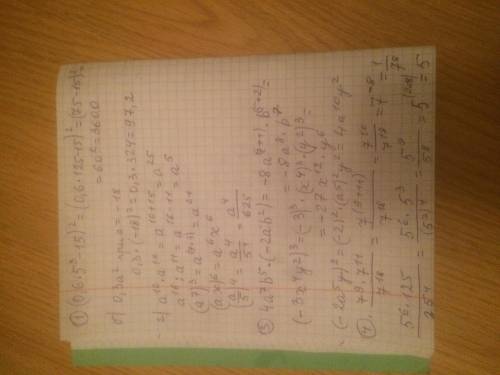 ① (0,6·5³-15)² = (0,6·125-15)² = (75-15)² =
= 60² = 3600
б) 0,3a² при a = -18
0,3·(-18)² = 0,3·324 = 97,2
a¹⁶:a¹¹ = a¹⁶⁻¹¹ = a⁵
(a⁷)³ = a⁽⁷·³⁾ = a²¹
(ax)⁶ = a⁶x⁶
(a/5)⁴ = a⁴/5⁴ = a⁴/625
③ 4a⁷b⁵·(-2ab²) = -8a⁽⁷⁺¹⁾·b⁽⁵⁺²⁾ =
= -8a⁸·b⁷
(-3x⁴y²)³ = (-3)³·(x⁴)³·(y²)³ =
= -27x¹²·y⁶
(-2a⁵y)² = (-2)²·(a⁵)²·y² = 4a¹⁰y²
④ 7⁹·7¹¹/7¹⁸ = 7⁽⁹⁺¹¹⁾/7¹⁸ = 7²⁰/7¹⁸
5⁶·125/25⁴ = 5⁶·5³/(5²)⁴ = 5⁹/5⁸ = 5⁽⁹⁻⁸⁾ = 5